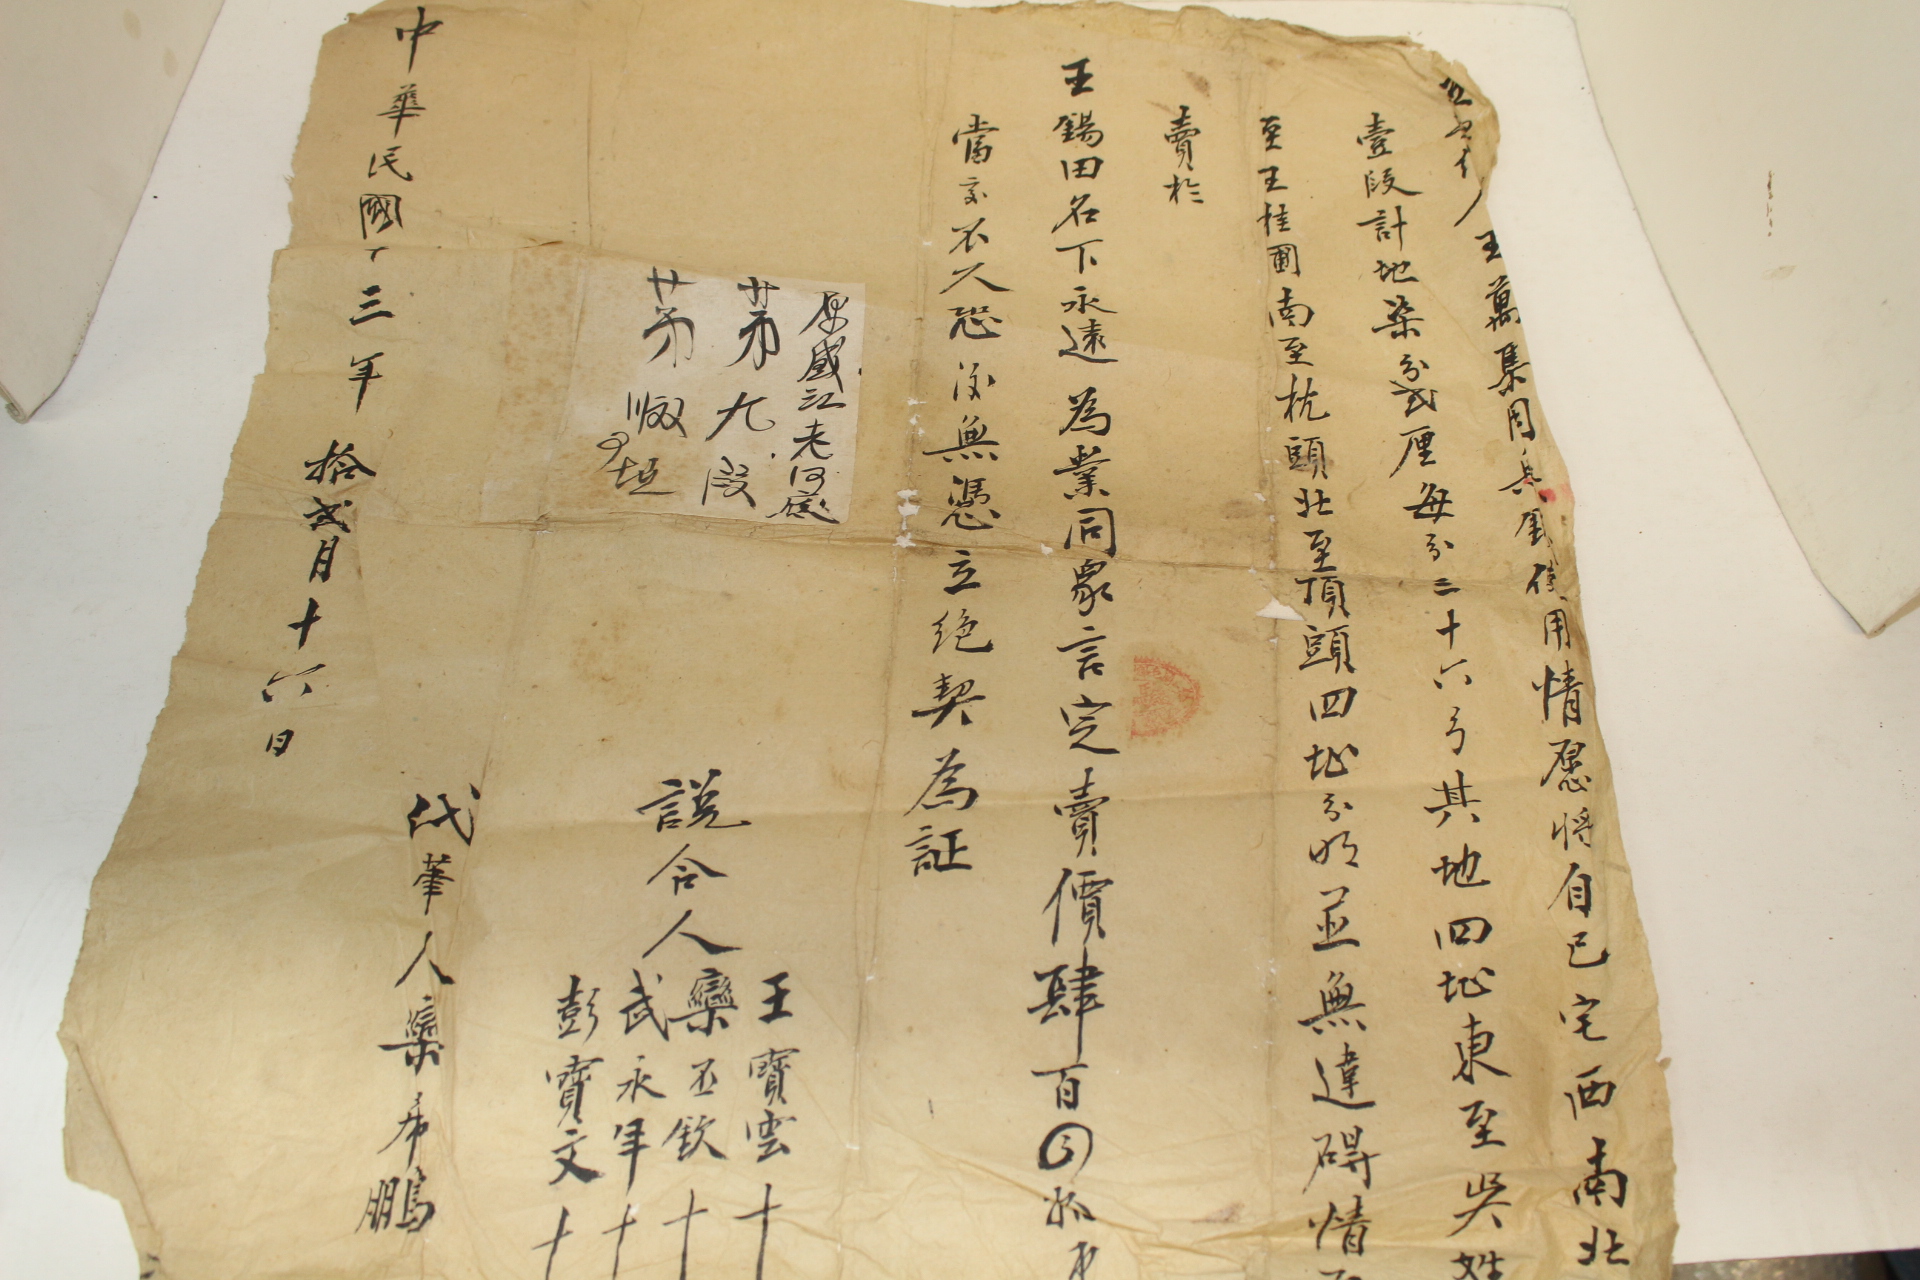 王萬集因無錢使用情愿將自己宅西南北
壹段計地柒分弍厘每分三十六弓其地四址東至吳姓
至王桂圃南至枕頭北至頂頭四址分明並無違碍情
賣於
王錫田名下永遠為業同眾言定賣價肆百
當交不欠恐後無憑立絕契為証
第九段
說合人
王寶雲十
欒丕欽十
武永年十
彭寶文十
代筆人欒希鵬
中華民國十三年拾弍月十六日